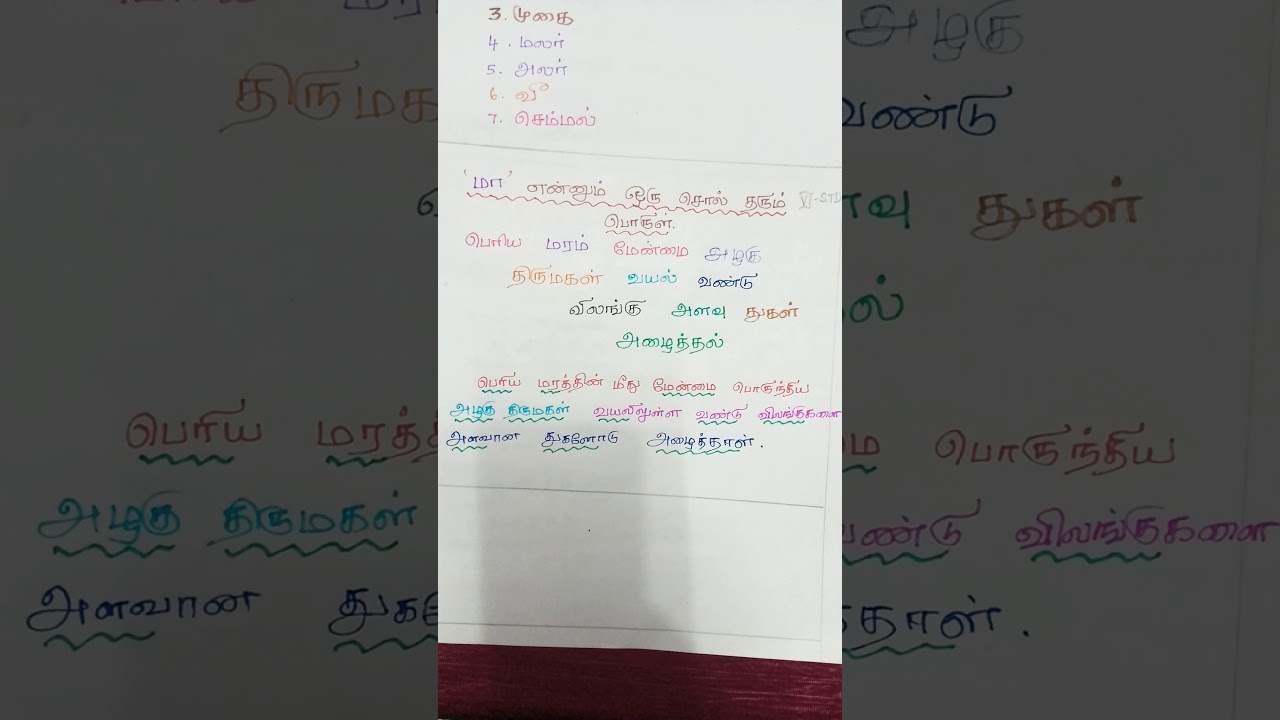 3. முகை
4. மலர்
5. அலர்
6. வீ
7. செம்மல்
'மா' என்னும் ஒரு சொல் தரும் VI-STD
பொருள்.
பெரிய மரம் மேன்மை அழகு
திருமகள் வயல் வண்டு
விலங்கு அளவு துகள்
அழைத்தல்
பெரிய மரத்தின் மீது மேன்மை பொருந்திய
அழகு திருமகள் வயலிலுள்ள வண்டு விலங்குகளை
அளவான துகளோடு அழைத்தாள்.